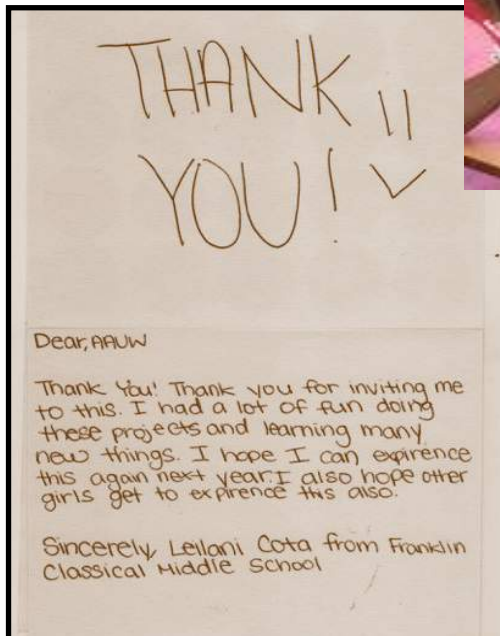 THANK
YOU!
Dear, AAUW
Thank You! Thank you for inviting me
to this. I had a lot of fun doing
these projects and learning many
new things. I hope I can expirence
this again next year. I also hope other
girls get to expirence this also.
Sincerely, Leilani Cota from Franklin
Classical Middle School